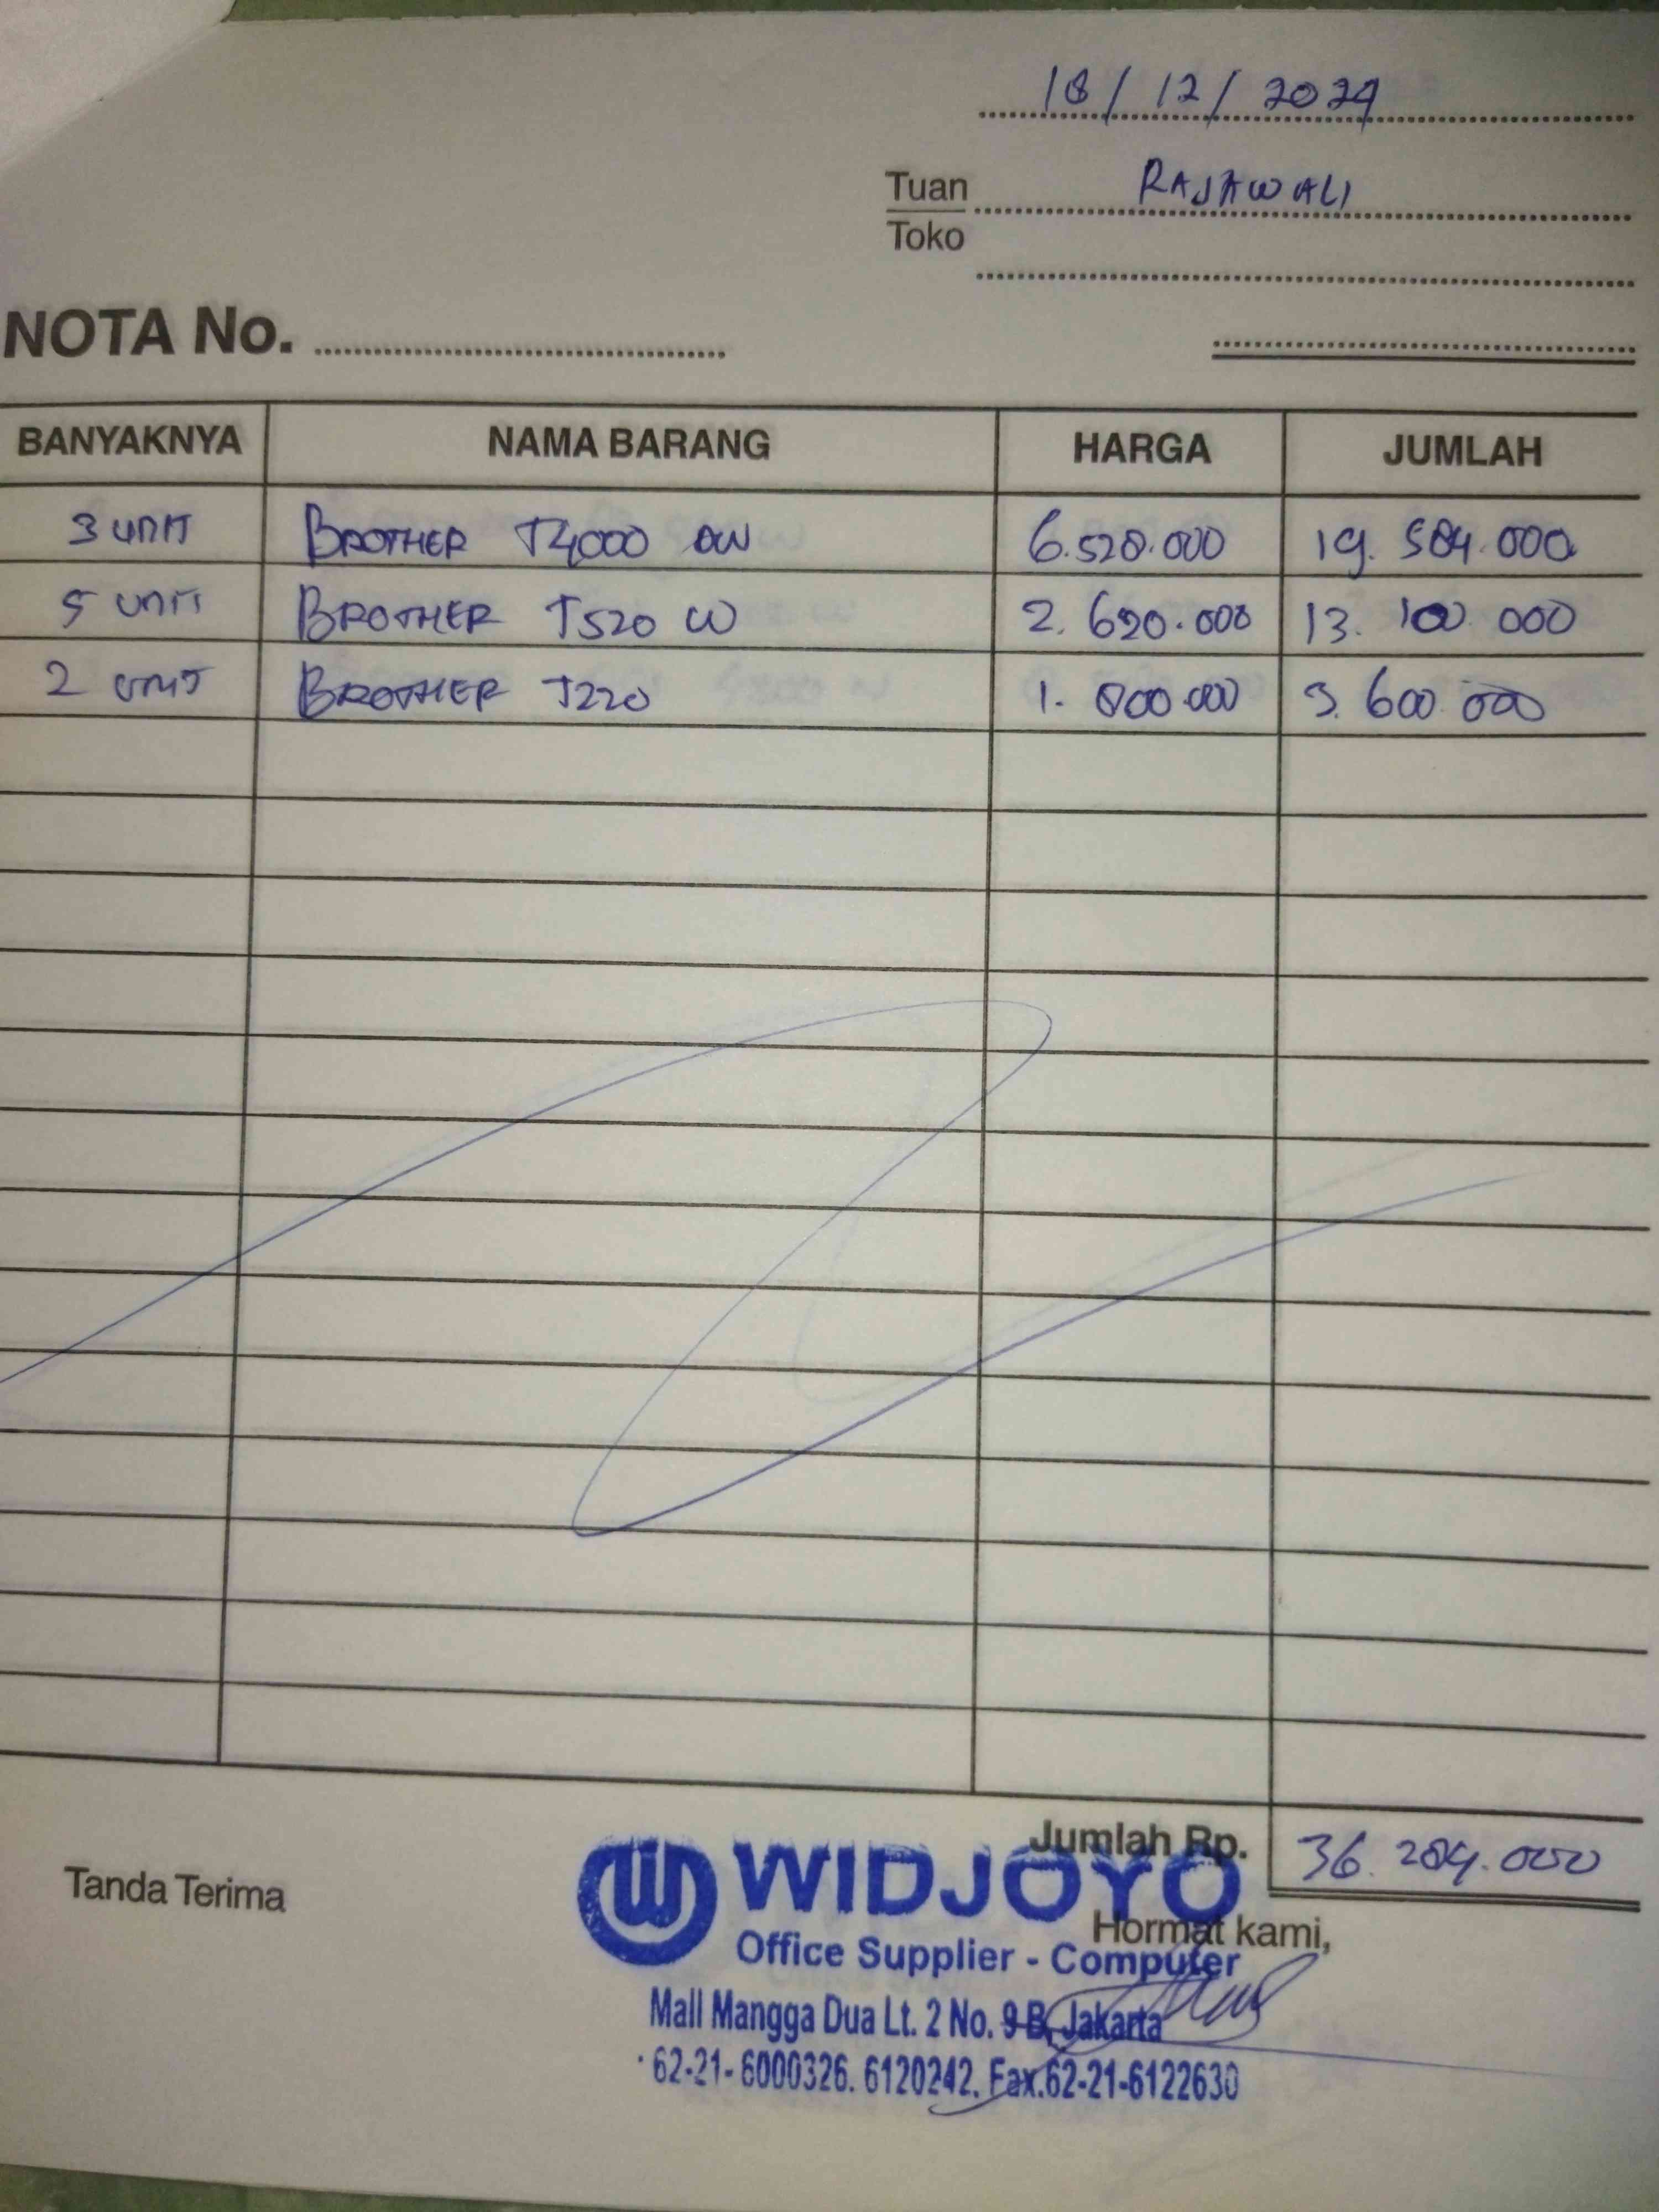 18/12/2024
Tuan RAJAWALI
Toko
NOTA No.
BANYAKNYA NAMA BARANG HARGA JUMLAH
3 UNIT BROTHER T4000 DW 6.528.000 19.584.000
5 UNIT BROTHER T520 W 2.620.000 13.100.000
2 UNIT BROTHER T220 1.800.000 3.600.000
Jumlah Rp. 36.284.000
Tanda Terima
Hormat kami,
WIDJOYO
Office Supplier - Computer
Mall Mangga Dua Lt. 2 No. 9 B, Jakarta
62-21-6000326. 6120242. Fax.62-21-6122630